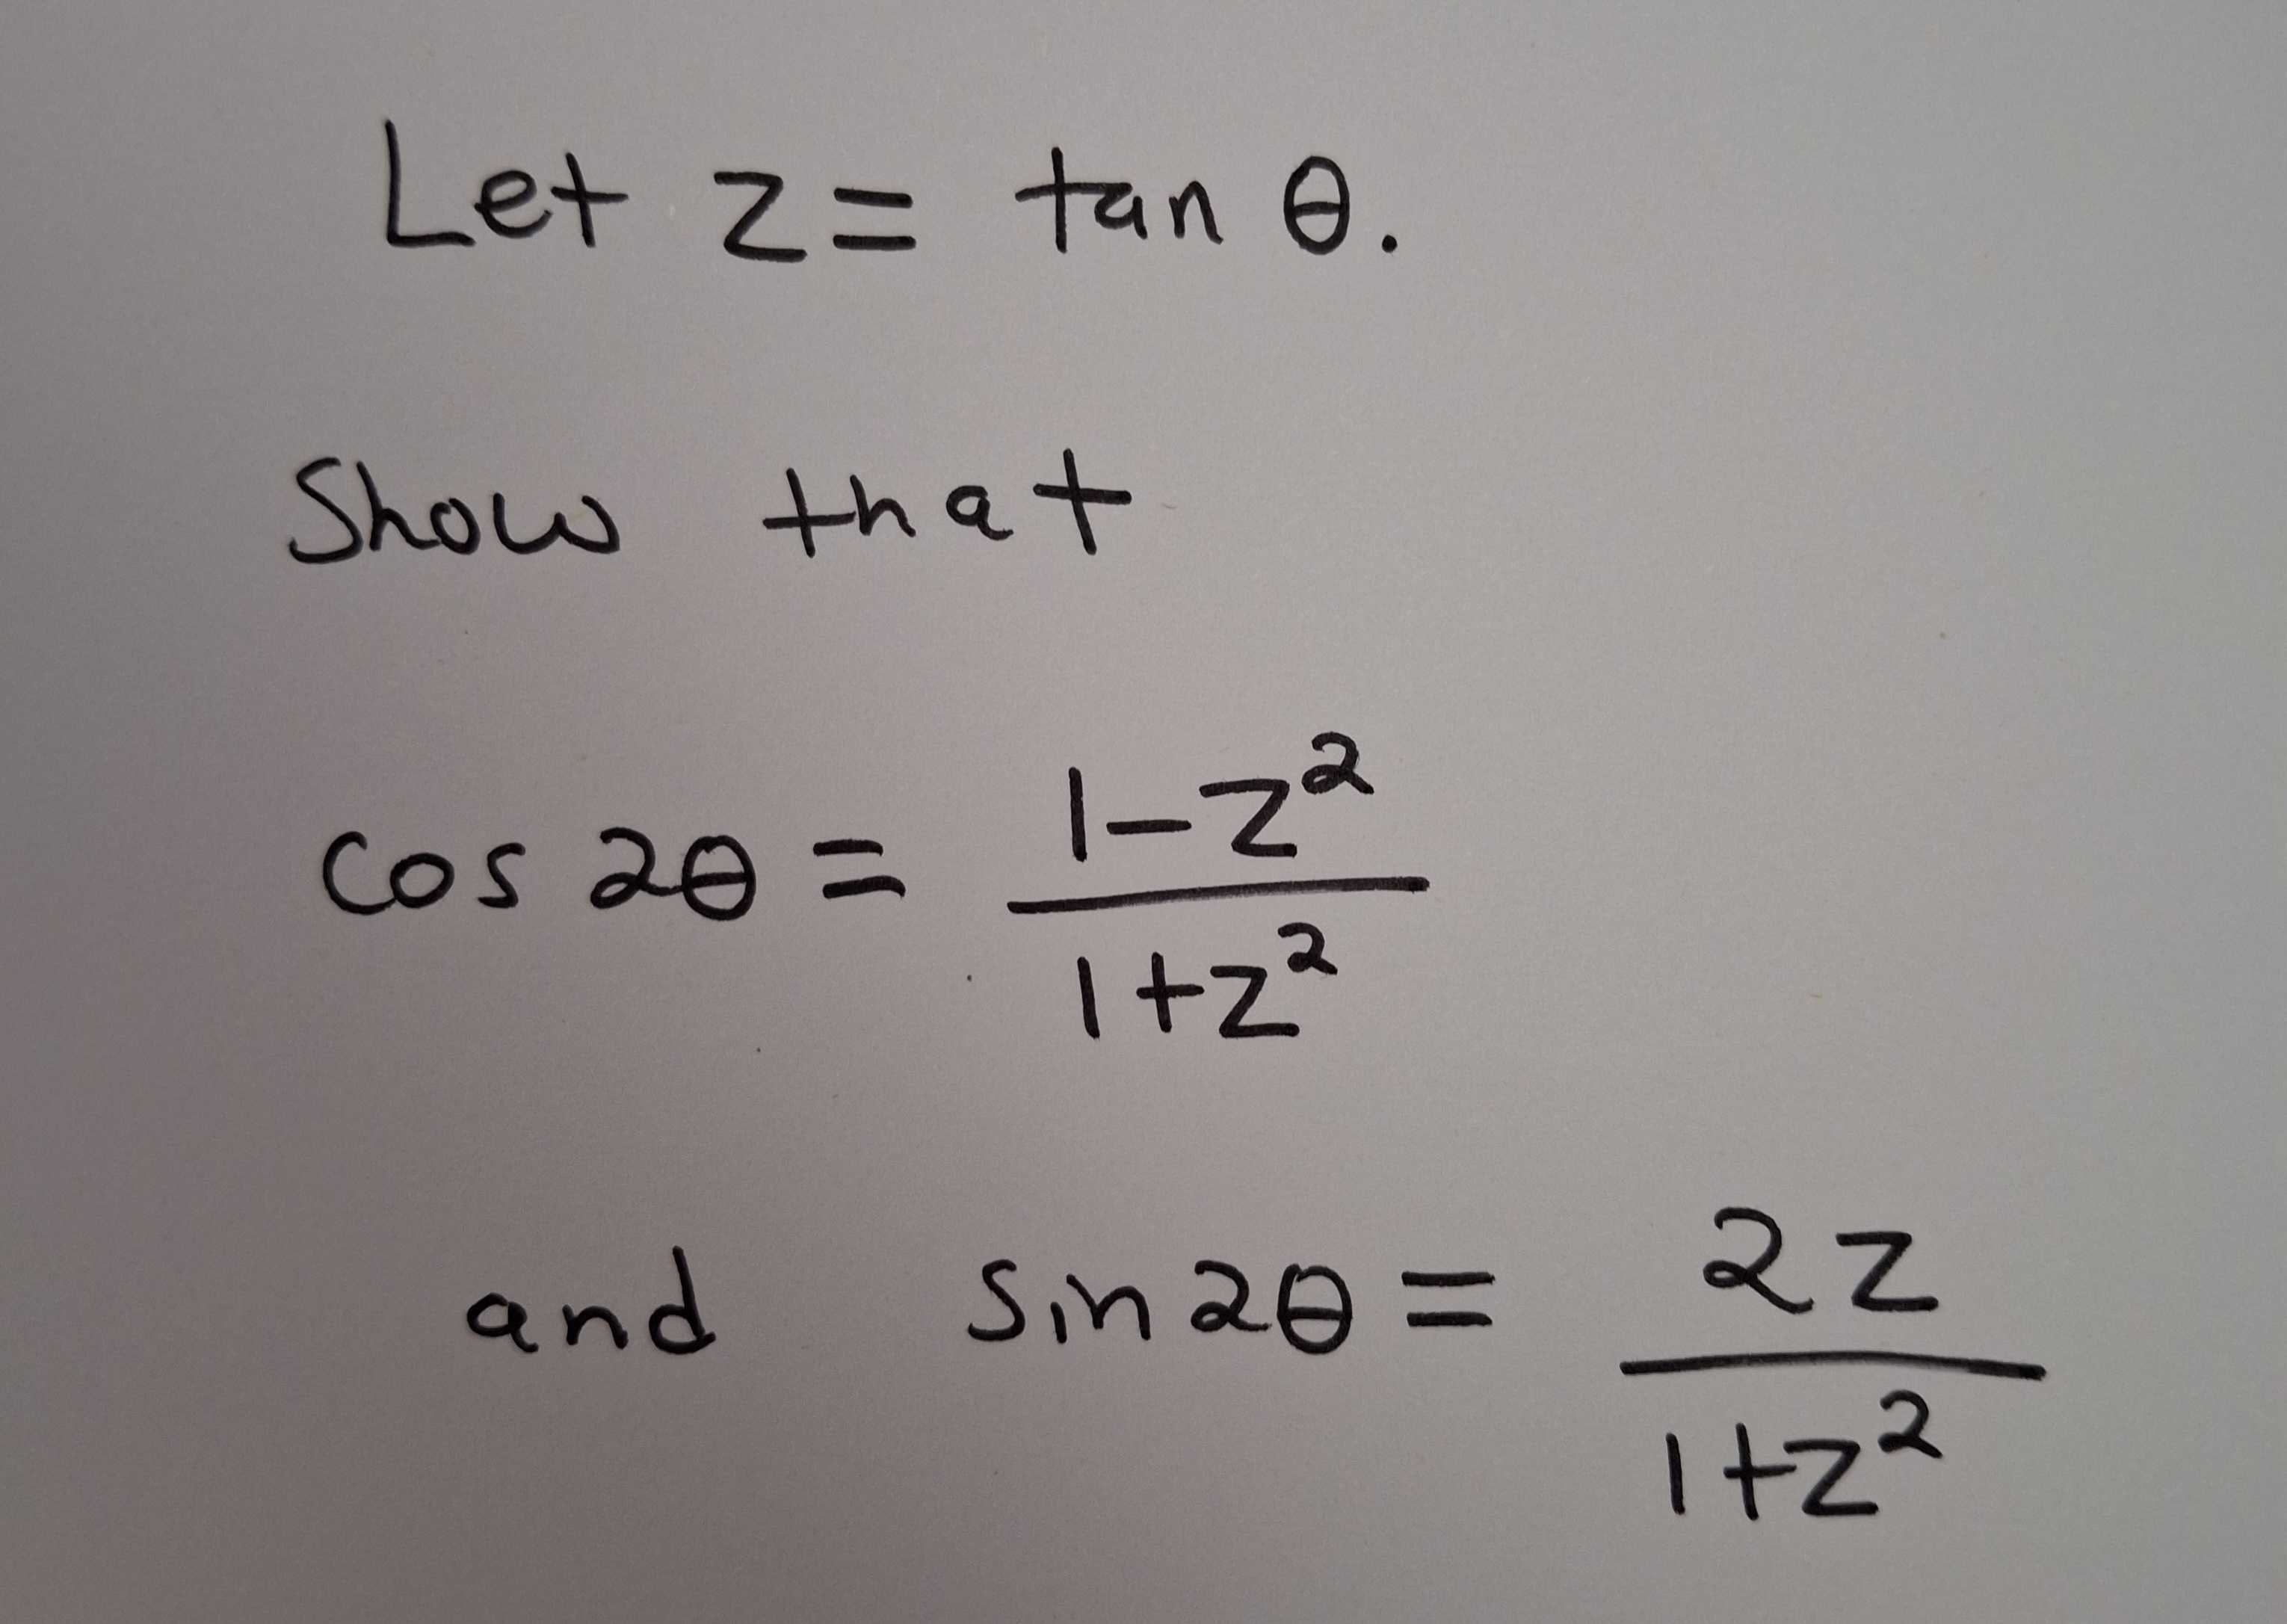 Let z = tan θ.
Show that
cos 2θ = (1-z²)/(1+z²)
and sin 2θ = 2z/(1+z²)